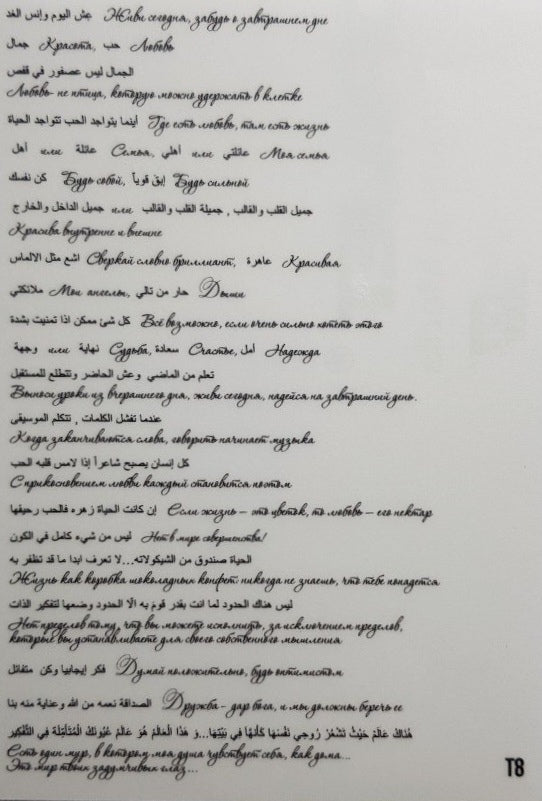 عش اليوم وانس الغد Живи сегодня, забудь о завтрашнем дне
جمال Красота, حب Любовь
الجمال ليس عصفور في قفص
Любовь- не птица, которую можно удержать в клетке
أينما يتواجد الحب تتواجد الحياة Где есть любовь, там есть жизнь
أهل или عائلة Семья, أهلي или عائلتي Моя семья
كن نفسك Будь собой, إبق قوياً Будь сильной
جميل القلب والقالب , جميلة القلب والقالب или جميل الداخل والخارج
Красива внутренне и внешне
اشع مثل الالماس Сверкай словно бриллиант, عاهرة Красивая
ملائكتي Мои ангелы, حار من تالي Дыши
كل شئ ممكن اذا تمنيت بشدة Всё возможно, если очень сильно хотеть этого
وجهة или نهاية Судьба, سعادة Счастье, أمل Надежда
تعلم من الماضي وعش الحاضر وتتطلع للمستقبل
Выноси уроки из вчерашнего дня, живи сегодня, надейся на завтрашний день.
عندما تفشل الكلمات , تتكلم الموسيقى
Когда заканчиваются слова, говорить начинает музыка
كل إنسان يصبح شاعراً إذا لامس قلبه الحب
С прикосновением любви каждый становится поэтом
إن كانت الحياة زهره فالحب رحيقها Если жизнь – это цветок, то любовь – его нектар
ليس من شيء كامل في الكون Нет в мире совершенства!
الحياة صندوق من الشيكولاته...لا تعرف ابدا ما قد تظفر به
Жизнь как коробка шоколадных конфет: никогда не знаешь, что тебе попадется
ليس هناك الحدود لما انت بقدر قوم به الّا الحدود وضعها لتفكير الذات
Нет пределов тому, что вы можете исполнить, за исключением пределов,
которые вы устанавливаете для своего собственного мышления
فكر إيجابيا وكن متفائل Думай положительно, будь оптимистом
الصداقة نعمه من الله وعناية منه بنا Дружба – дар бога, и мы должны беречь ее
هُنَاكَ عَالَمٌ حَيْثُ تَشْعُرُ رُوحِي نَفْسَهَا كَأَنَّهَا فِي بَيْتِهَا...وَ هَذَا الْعَالَمُ هُوَ عَالَمُ عُيُونِكَ الْمُتَأَمِّلَةِ فِي التَّفْكِيرِ
Есть один мир, в котором моя душа чувствует себя, как дома...
Это мир твоих задумчивых глаз...
T8